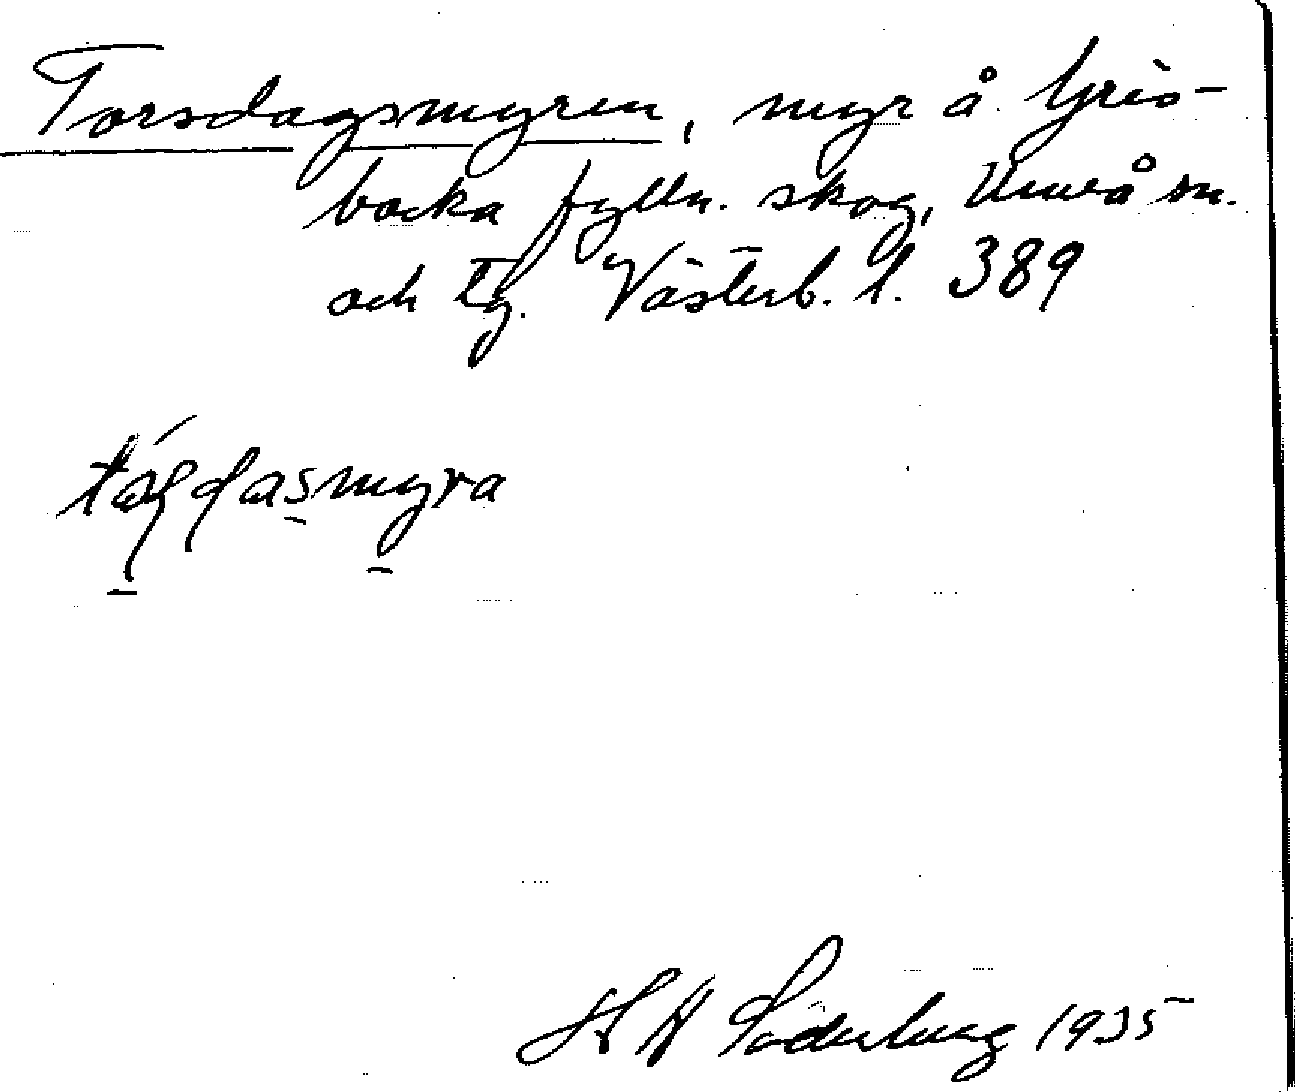 Torsdagsmyren, myr å Gris-
backa fylln. skog, Umeå sn.
och tg. Västerb. l. 389
H H Söderberg 1935